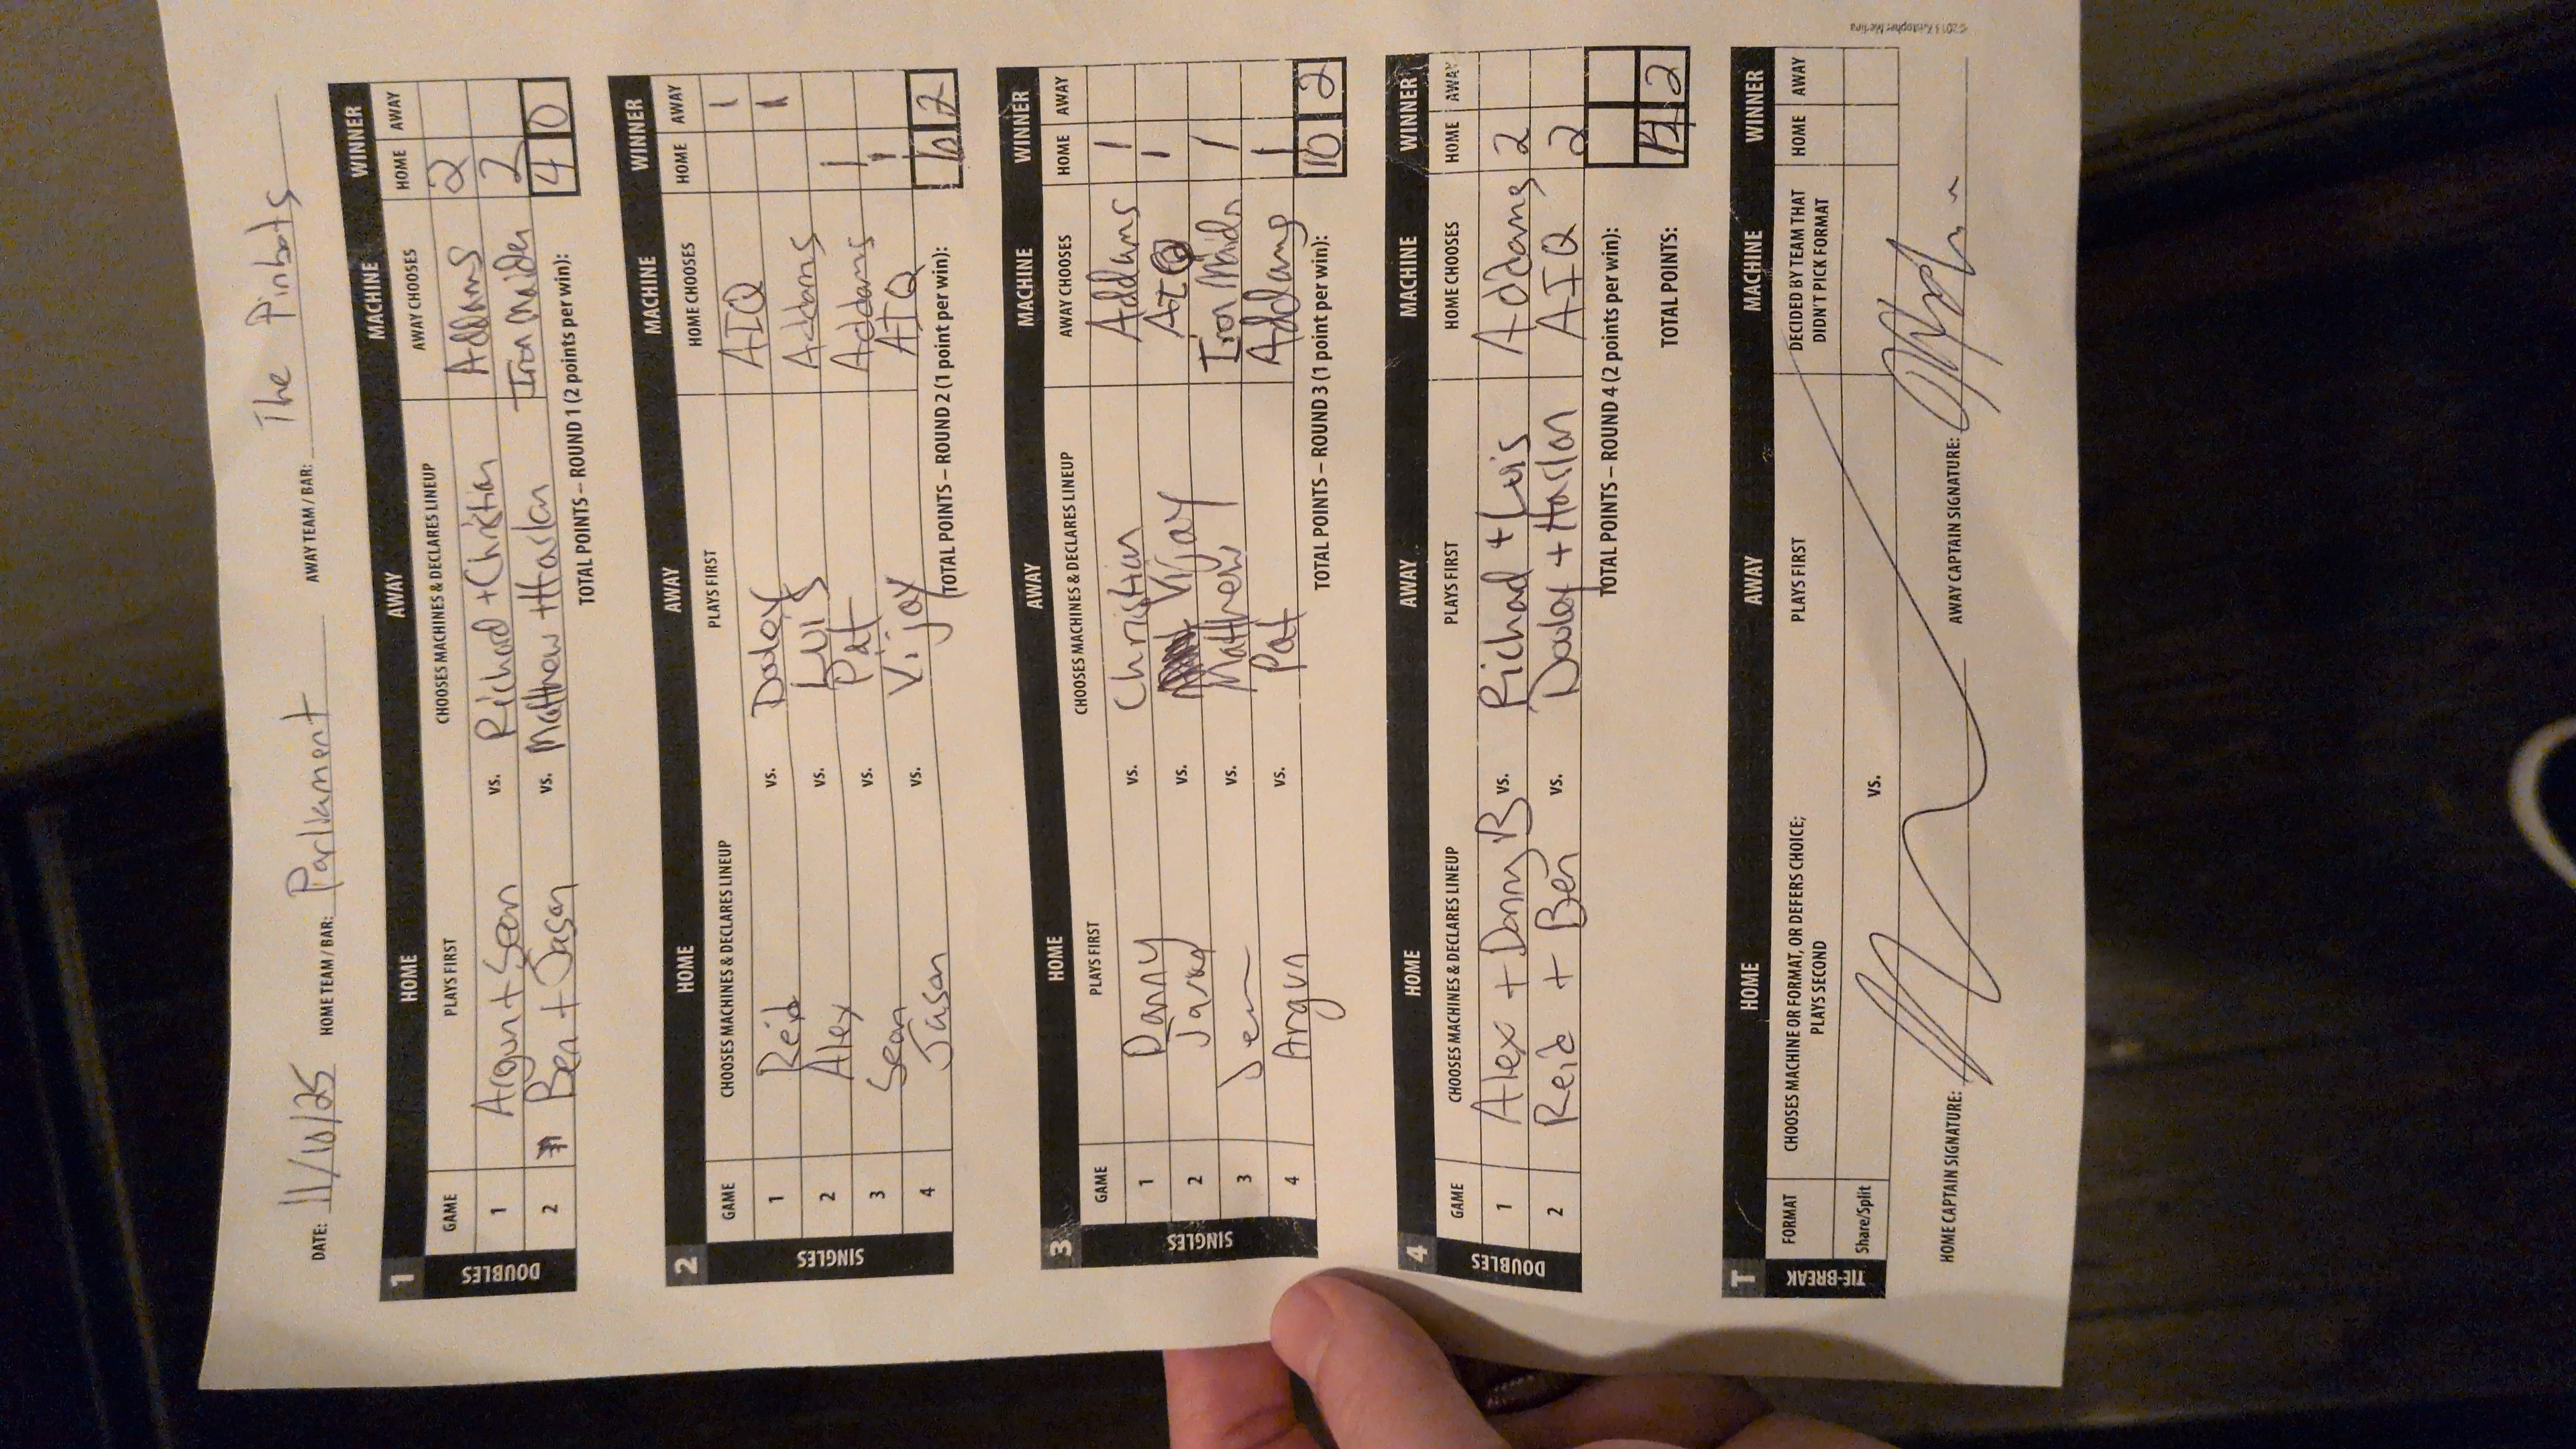 DATE: 11/10/25 HOME TEAM / BAR: Parliament AWAY TEAM / BAR: The Pinbots
1 HOME AWAY MACHINE WINNER
GAME PLAYS FIRST CHOOSES MACHINES & DECLARES LINEUP AWAY CHOOSES HOME AWAY
DOUBLES
1 Argun + Sean vs. Richard + Christian Addams 2
2 Ben + Jason vs. Matthew + Harlan Iron Maiden 2
TOTAL POINTS – ROUND 1 (2 points per win): 4 0
2 HOME AWAY MACHINE WINNER
GAME CHOOSES MACHINES & DECLARES LINEUP PLAYS FIRST HOME CHOOSES HOME AWAY
SINGLES
1 Reid vs. Dooley AIQ 1
2 Alex vs. Luis Addams 1
3 Sean vs. Pat Addams 1
4 Jason vs. Vijay AIQ 1
TOTAL POINTS – ROUND 2 (1 point per win): 6 2
3 HOME AWAY MACHINE WINNER
GAME PLAYS FIRST CHOOSES MACHINES & DECLARES LINEUP AWAY CHOOSES HOME AWAY
SINGLES
1 Danny vs. Christian Addams 1
2 vs. Vijay AIQ 1
3 Jen vs. Matthew Iron Maidn 1
4 Argun vs. Pat Addams 1
TOTAL POINTS – ROUND 3 (1 point per win): 10 2
4 HOME AWAY MACHINE WINNER
GAME CHOOSES MACHINES & DECLARES LINEUP PLAYS FIRST HOME CHOOSES HOME AWAY
DOUBLES
1 Alex + Danny B vs. Richard + Luis Addams 2
2 Reid + Ben vs. Dooley + Harlan AIQ 2
TOTAL POINTS – ROUND 4 (2 points per win):
TOTAL POINTS: 14 2
T HOME AWAY MACHINE WINNER
FORMAT CHOOSES MACHINE OR FORMAT, OR DEFERS CHOICE; PLAYS FIRST DECIDED BY TEAM THAT HOME AWAY
PLAYS SECOND DIDN'T PICK FORMAT
TIE-BREAK
Share/Split vs.
HOME CAPTAIN SIGNATURE: AWAY CAPTAIN SIGNATURE:
©2013 Kristopher Medina